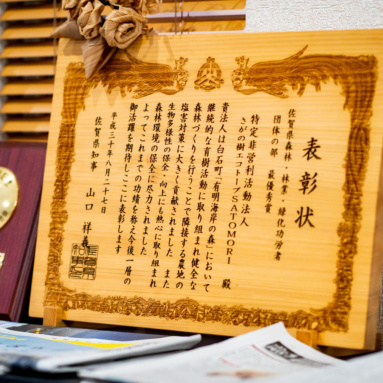 表彰状
佐賀県森林・林業・緑化功労者
団体の部 最優秀賞
特定非営利活動法人
さがの樹エコトープSATOMORI 殿
貴法人は白石町「有明海岸の森」において
継続的な育樹活動に取り組まれ健全な
森林づくりを行うことで隣接する農地の
塩害対策に大きく貢献されました また
生物多様性の保全・向上にも熱心に取り組まれ
森林環境の保全に尽力されました
よってこれまでの功績を称え今後一層の
御活躍を期待しここに表彰します
平成三十年八月二十七日
佐賀県知事 山口 祥義